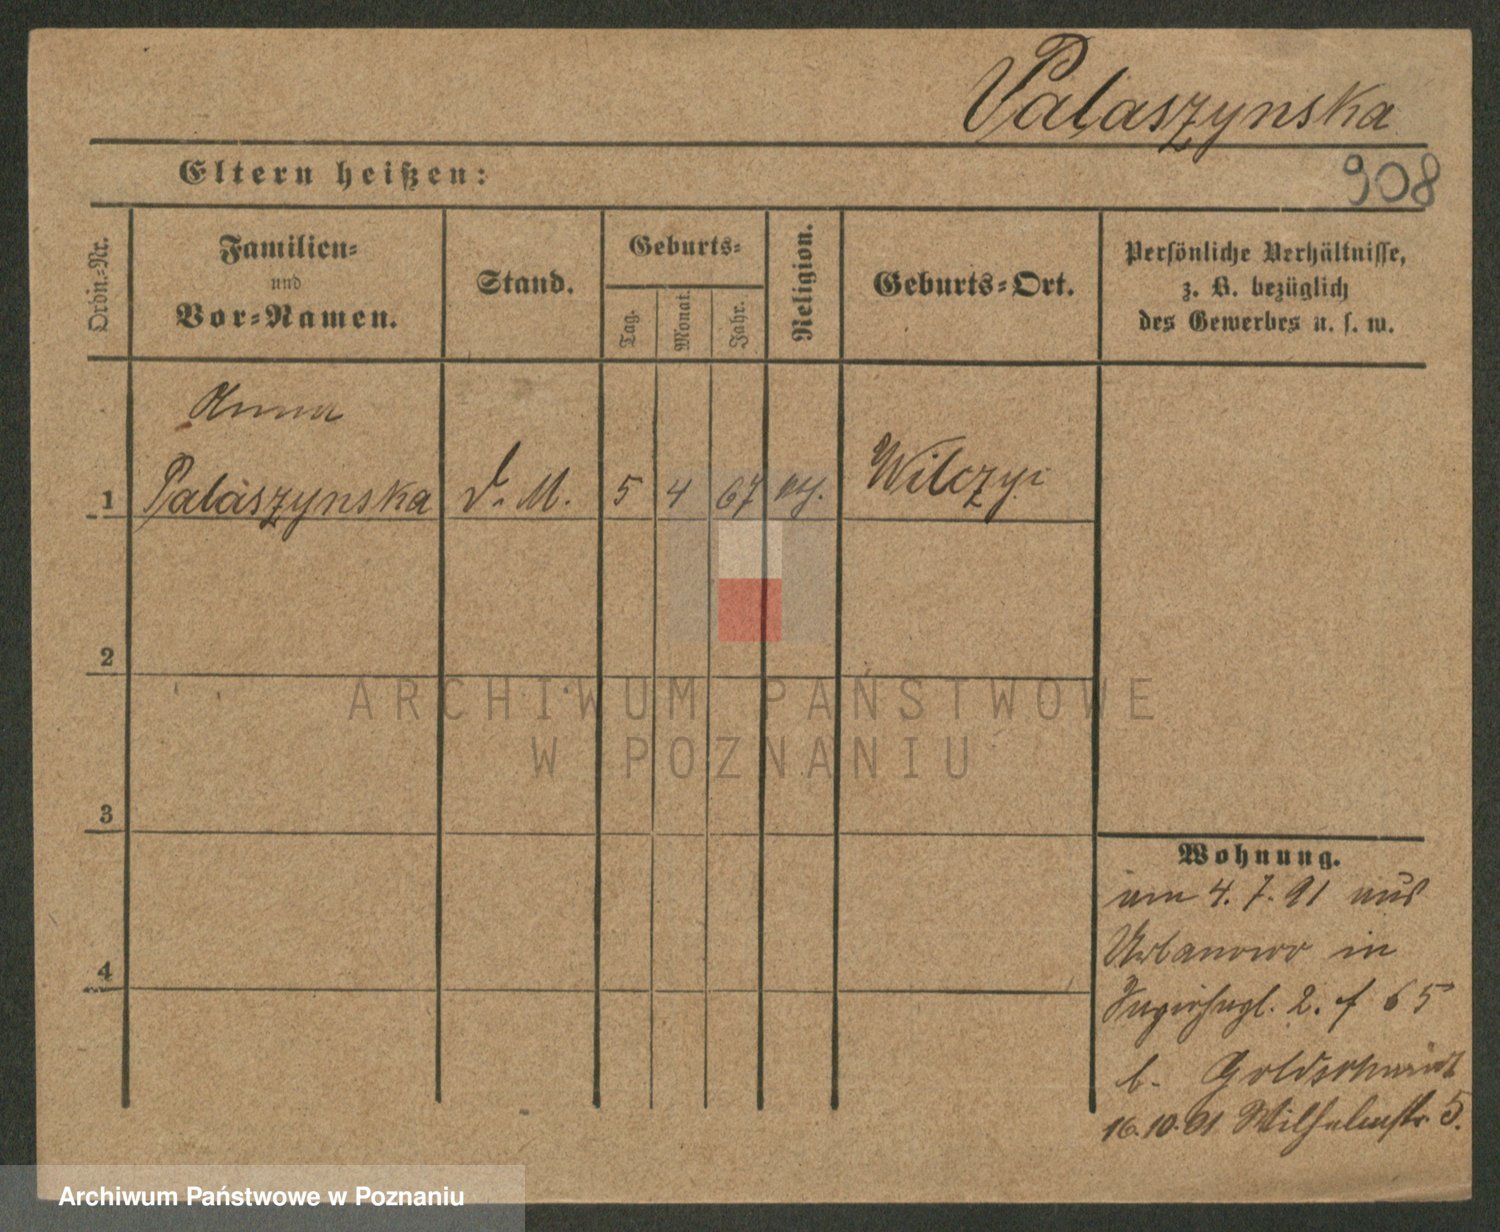 Palaszynska
908
Eltern heißen:
Ordn.-Nr.
Familien-
und
Vor-Namen.
Stand.
Geburts-
Tag.
Monat.
Jahr.
Religion.
Geburts-Ort.
Persönliche Verhältnisse,
z. B. bezüglich
des Gewerbes u. s. w.
Anna
1 Palaszynska d. M. 5 4 67 Wilczyi
2
3
4
ARCHIWUM PAŃSTWOWE
W POZNANIU
Wohnung.
am 4. 7. 91 aus
Urbanowo in
2. 65
b. Goldschmidt
16.10.91 Wilhelmstr. 5.
Archiwum Państwowe w Poznaniu